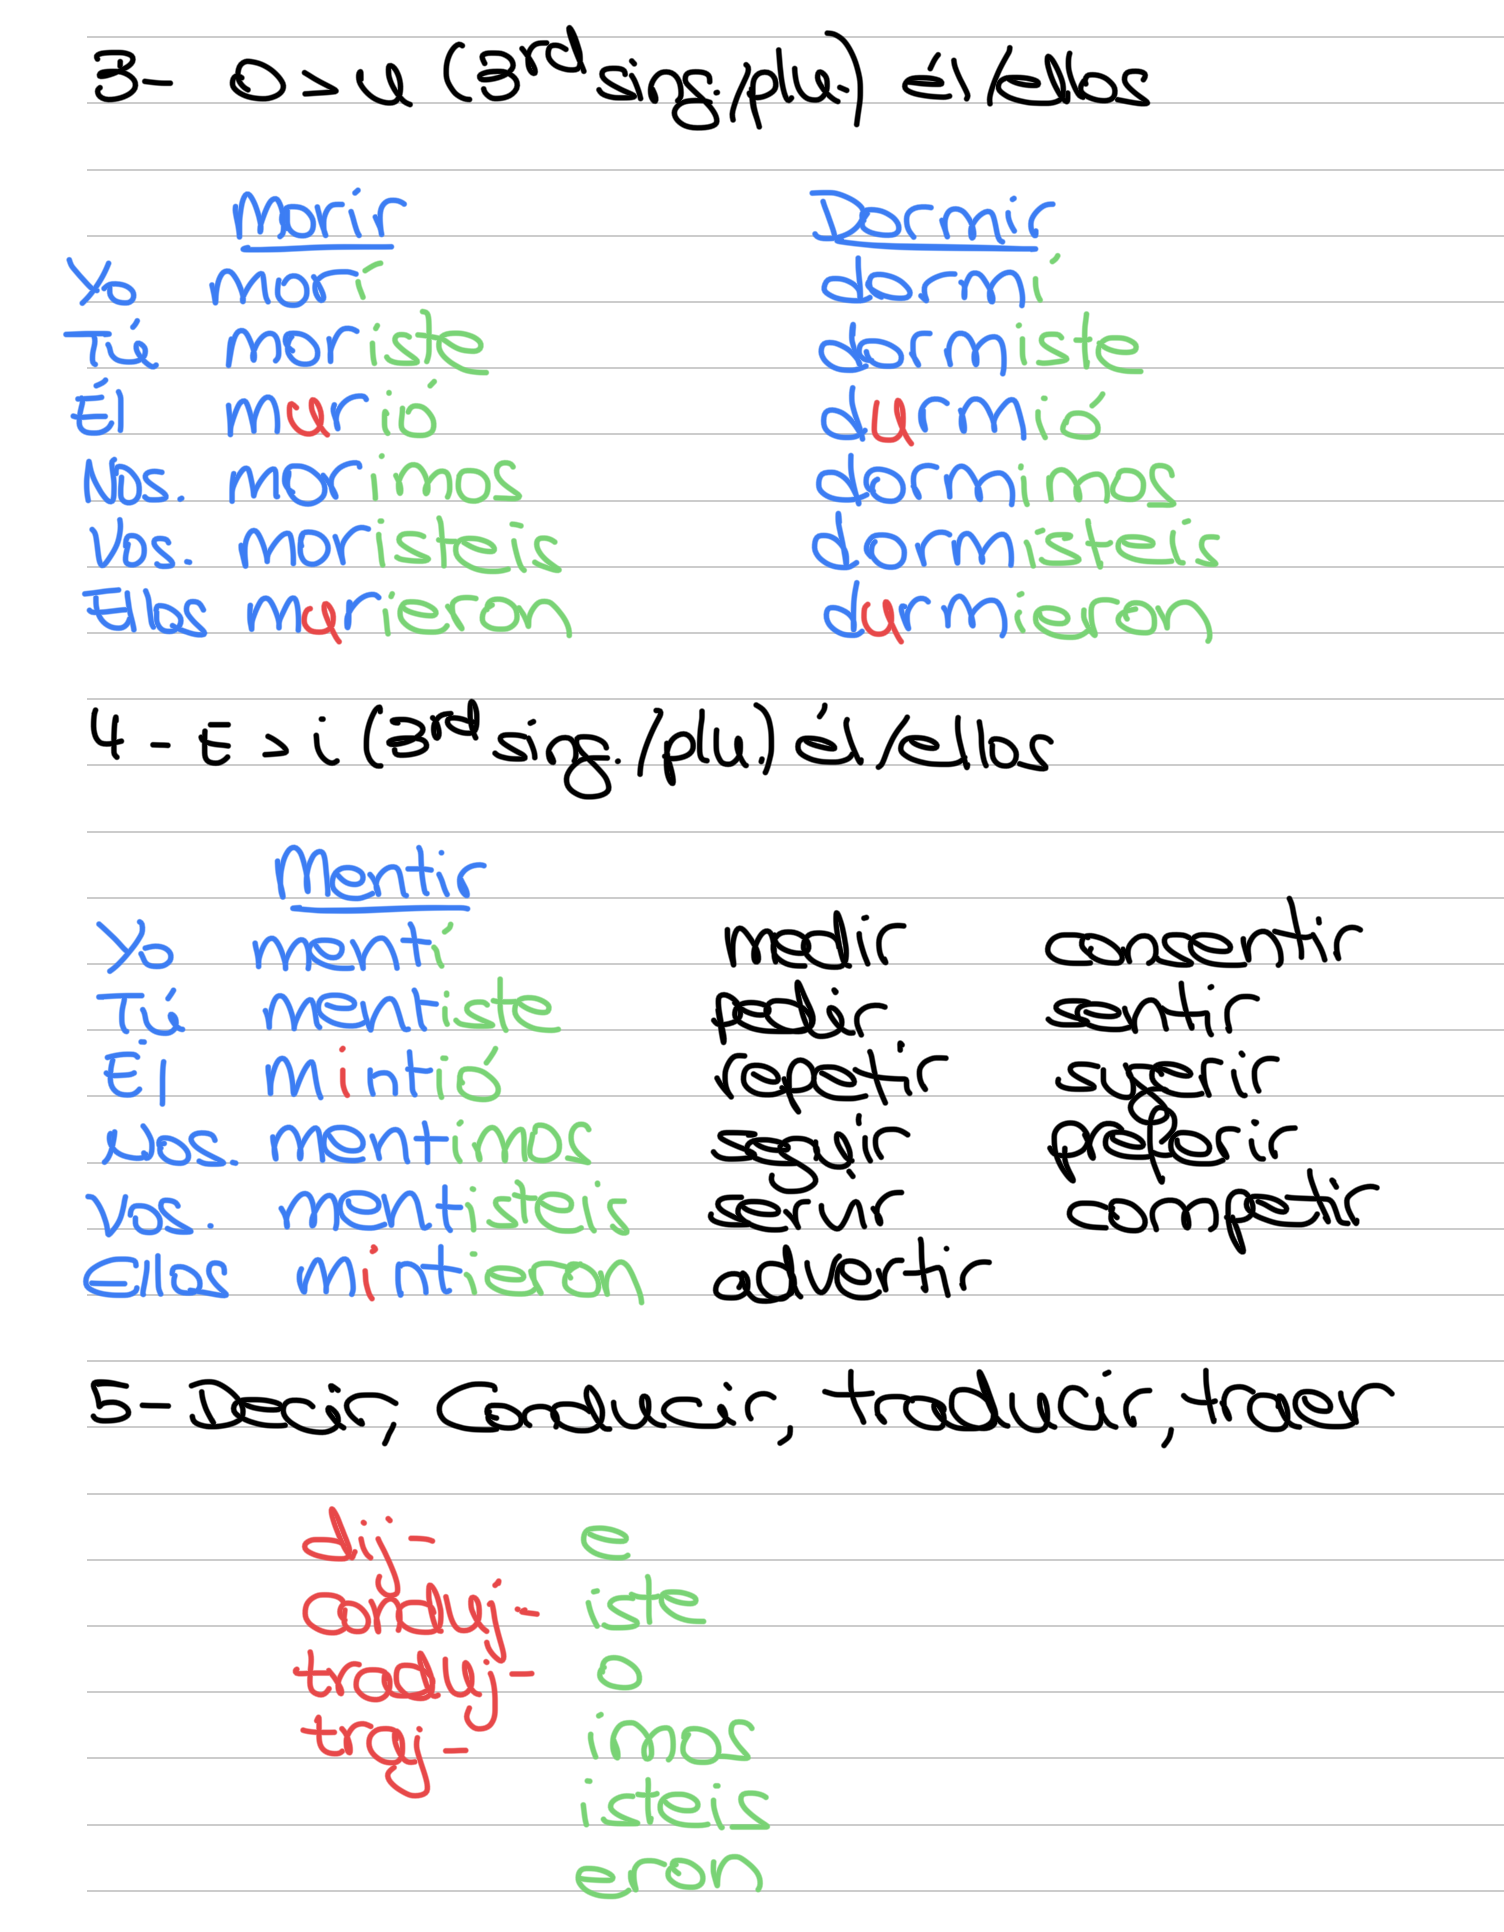 3- O > u (3rd sing./plu.) él/ellos
Morir Dormir
Yo morí dormí
Tú moriste dormiste
Él murió durmió
Nos. morimos dormimos
Vos. moristeis dormisteis
Ellos murieron durmieron
4 - E > i (3rd sing./plu.) él/ellos
Mentir
Yo mentí medir consentir
Tú mentiste pedir sentir
Él mintió repetir sugerir
Nos. mentimos seguir preferir
Vos. mentisteis servir competir
Ellos mintieron advertir
5- Decir, Conducir, traducir, traer
dij- e
conduj- iste
traduj- o
traj- imos
isteis
eron